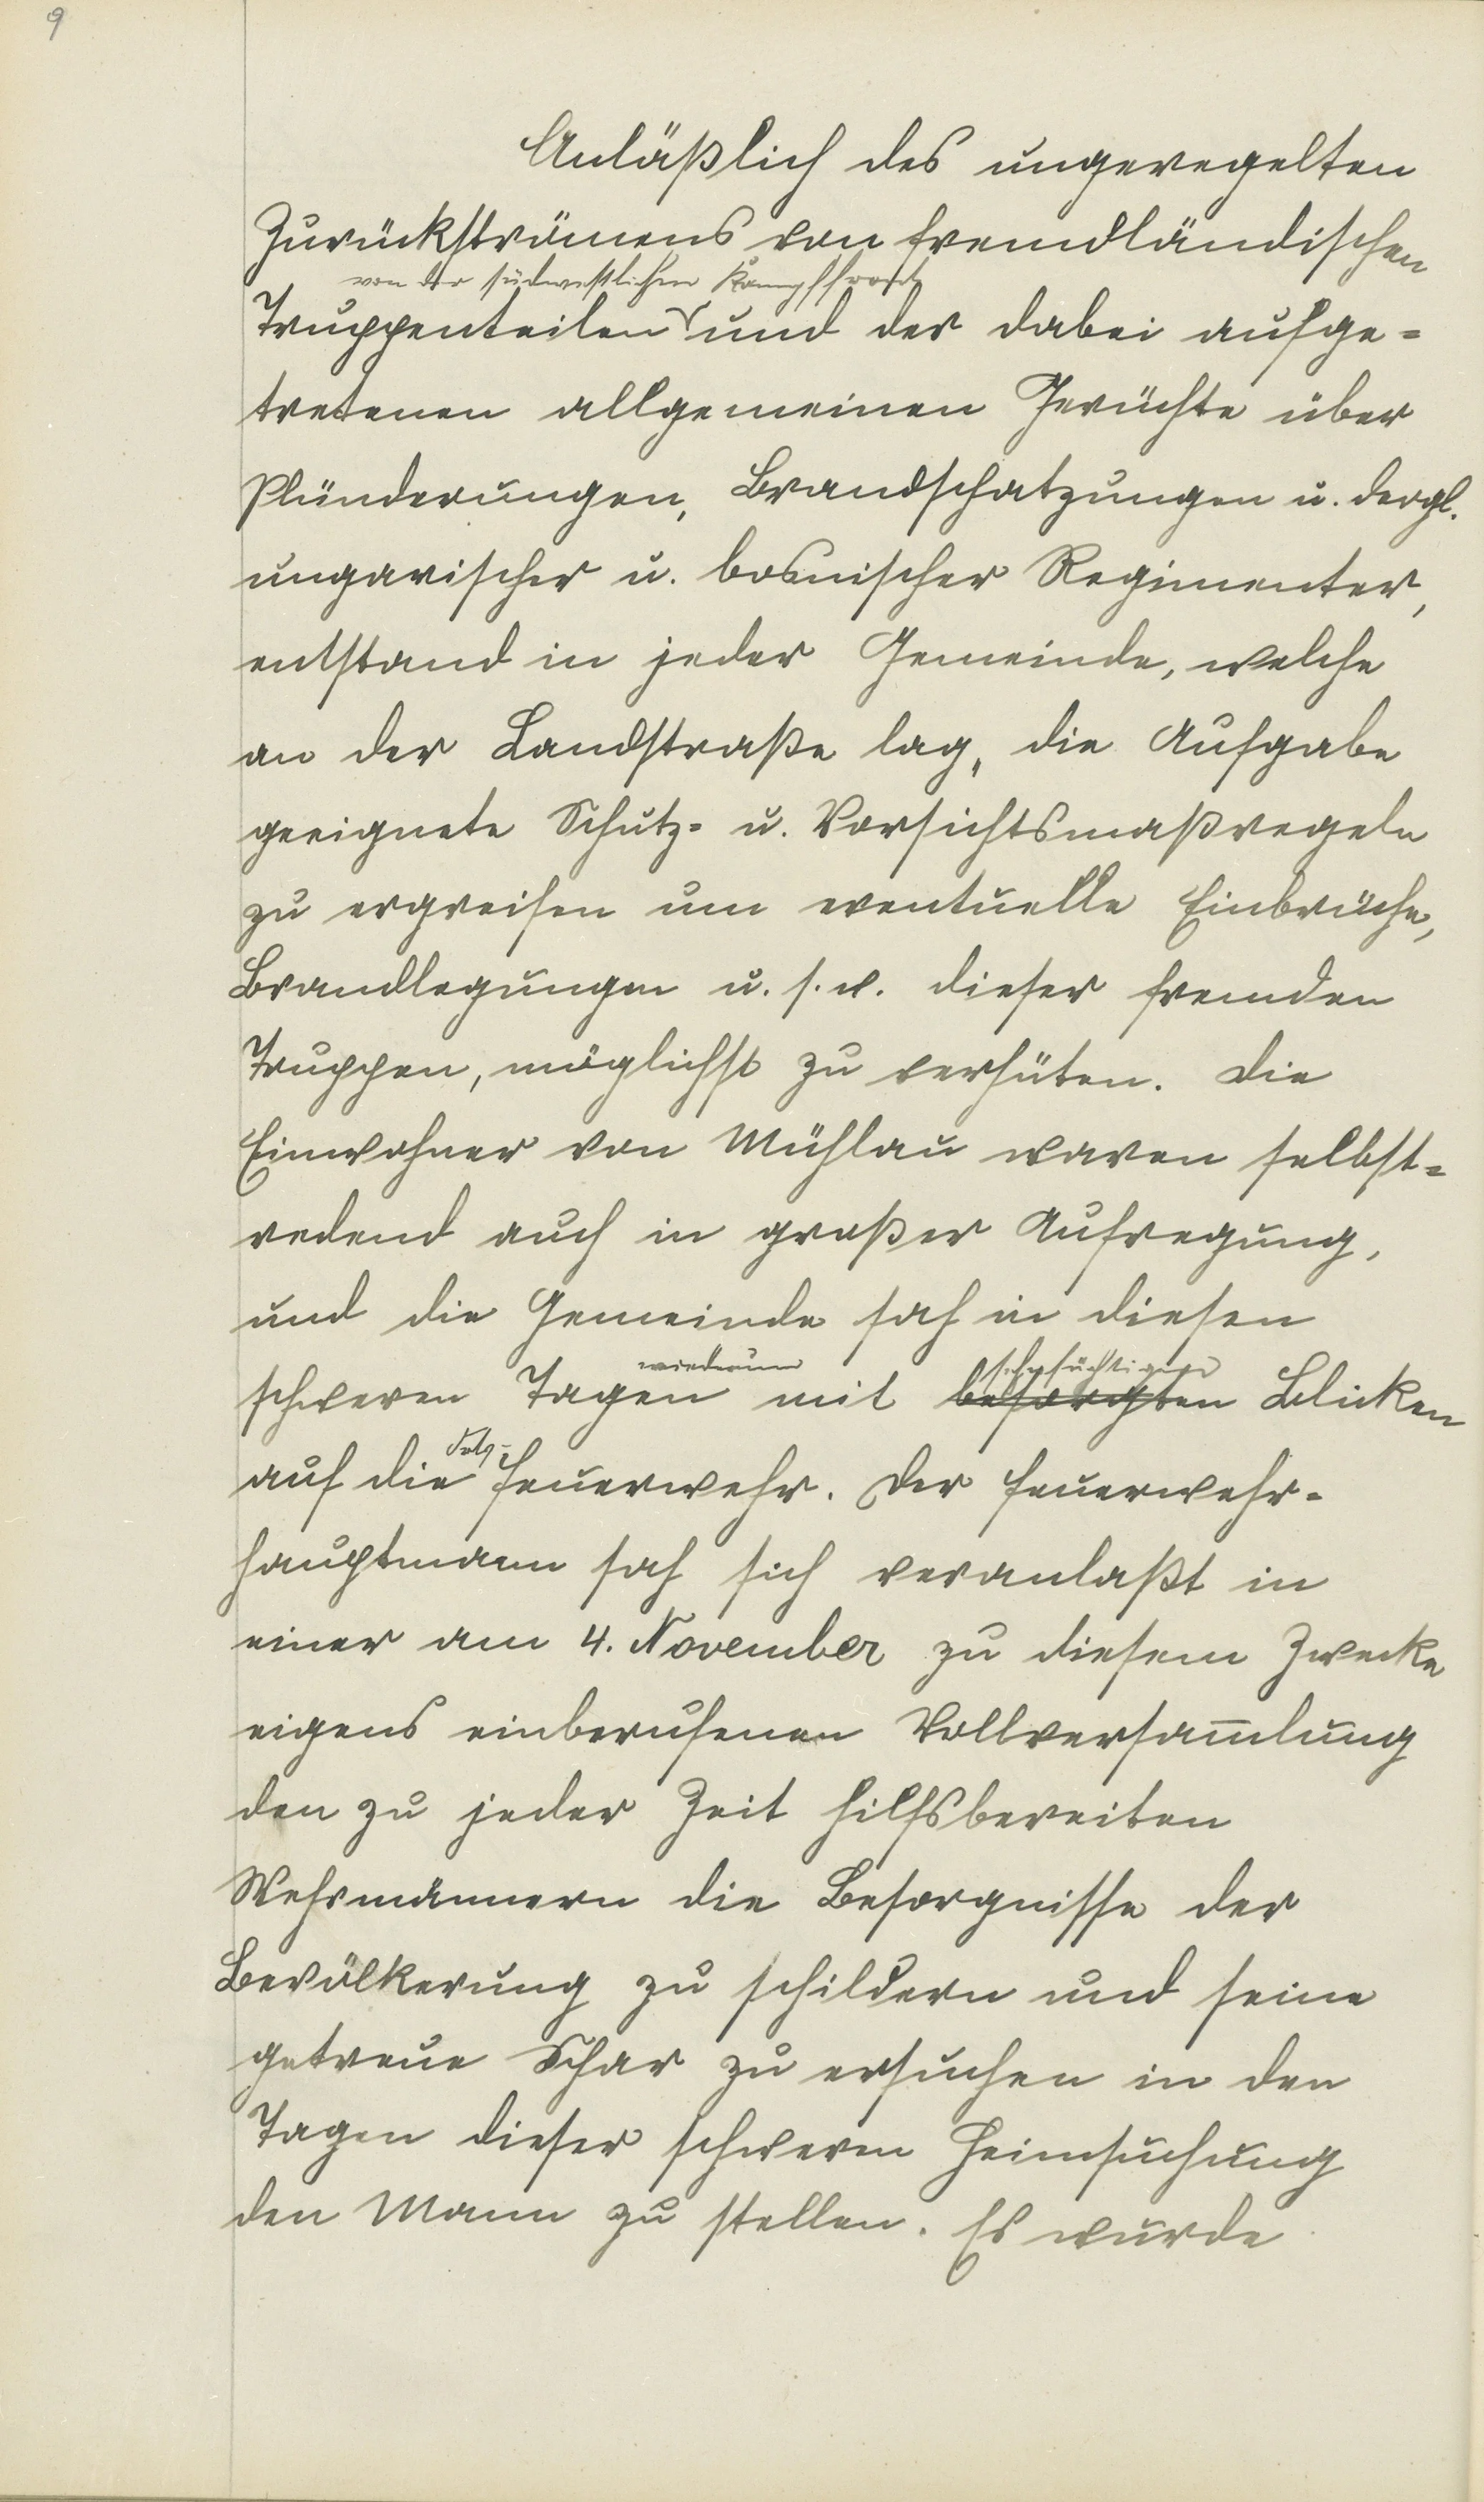 9
Anläßlich des ungeregelten
Zurückströmens von fremdländischen
von der südwestlichen Kampffront
Truppenteilen und der dabei aufge=
tretenen allgemeinen Gerüchte über
Plünderungen, Brandschatzungen u. dergl.
ungarischer u. bosnischer Regimenter,
entstand in jeder Gemeinde, welche
an der Landstraße lag, die Aufgabe
geeignete Schutz= u. Vorsichtsmaßregeln
zu ergreifen um eventuelle Einbrüche,
Brandlegungen u. s. w. dieser fremden
Truppen, möglichst zu verhüten. Die
Einwohner von Mühlau waren selbst=
redend auch in großer Aufregung,
und die Gemeinde sah in diesen
wiederum sehnsüchtigen
schweren Tagen mit besorgten Blicken
auf die Feuerwehr. Der Feuerwehr=
hauptmann sah sich veranlaßt in
einer am 4. November zu diesem Zwecke
eigens einberufenen Vollversam̅lung
den zu jeder Zeit hilfsbereiten
Wehrmännern die Besorgnisse der
Bevölkerung zu schildern und seine
getreue Schar zu ersuchen in den
Tagen dieser schweren Heimsuchung
den Mann zu stellen. Es wurde